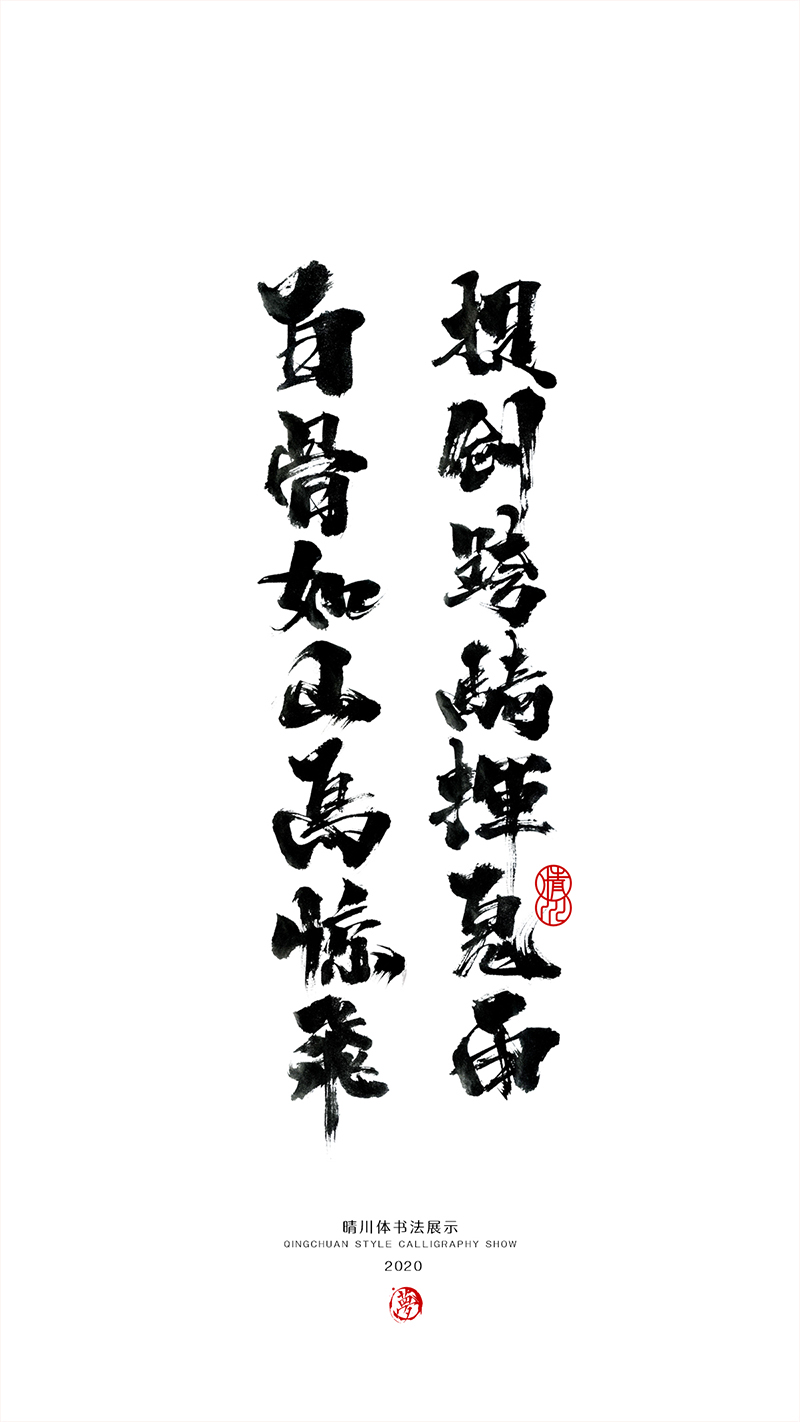 提剑跨騎揮鬼雨
白骨如山鳥惊飛
晴川
晴川体书法展示
QINGCHUAN STYLE CALLIGRAPHY SHOW
2020
夢